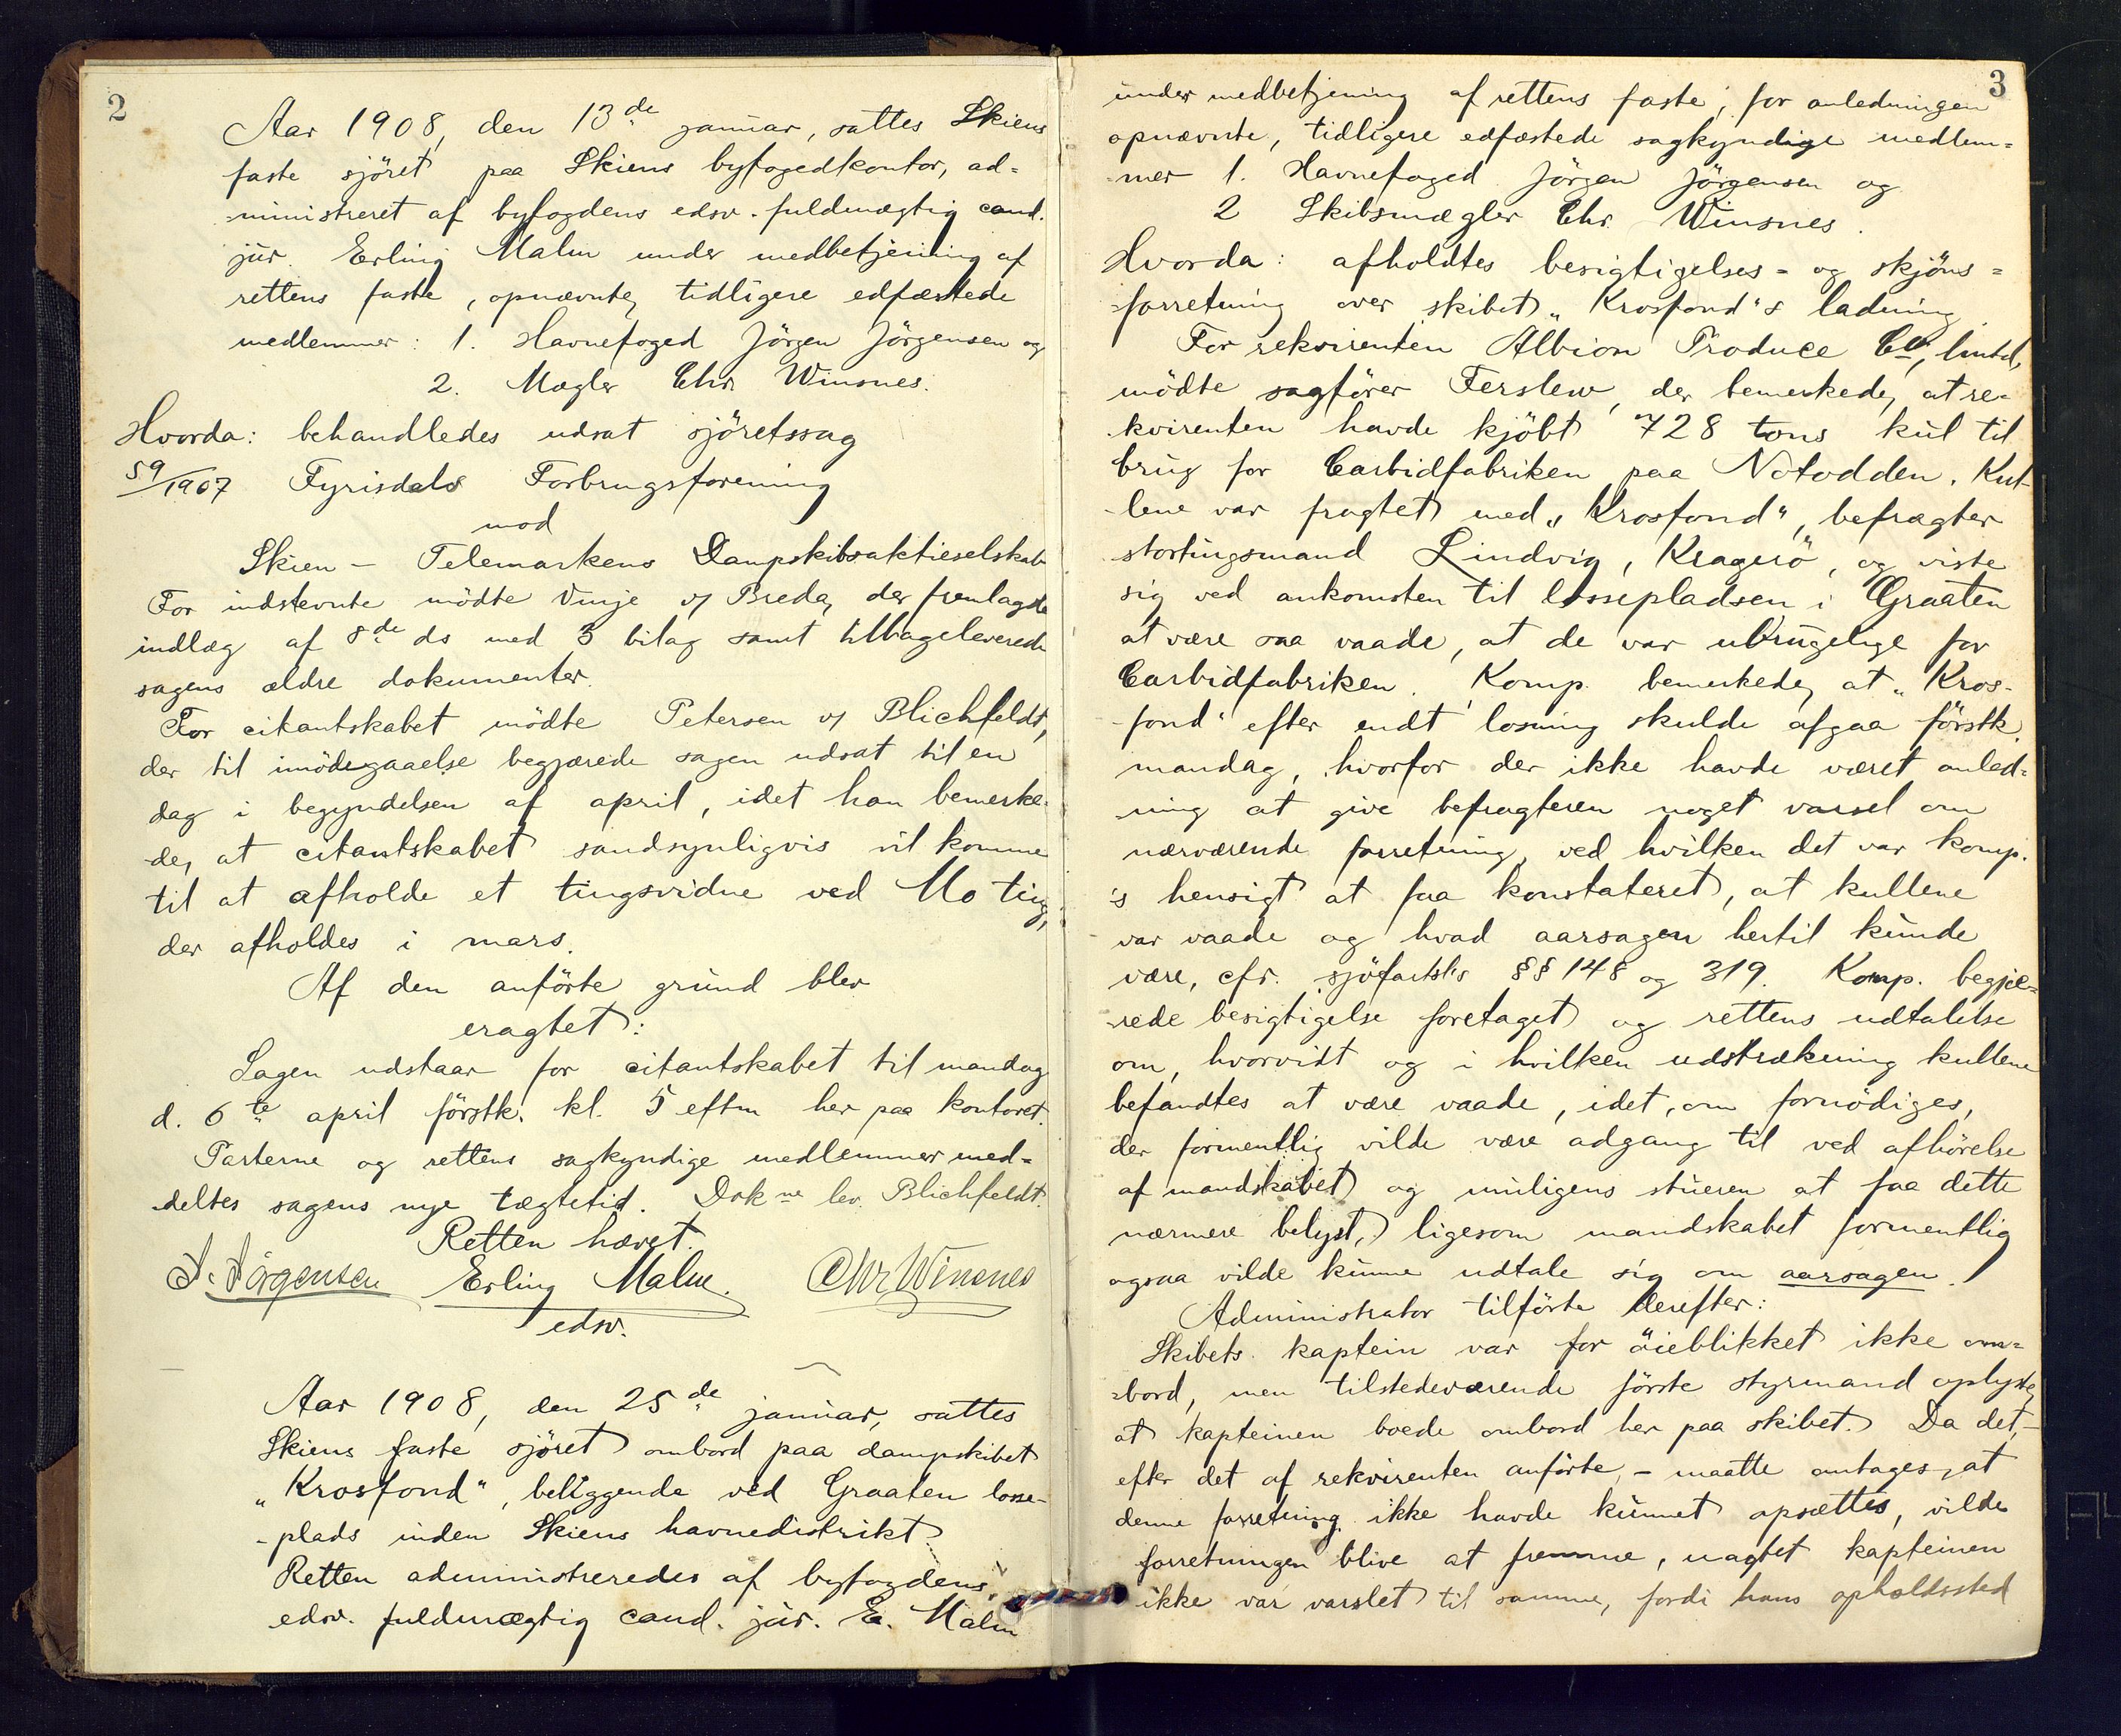 2
Aar 1908, den 13de januar, sattes Skiens
faste sjöret paa Skiens byfogedkontor, ad-
ministreret af byfogdens edsv. fuldmægtig cand.
jur. Erling Malm under medbetjening af
rettens faste, opnævnte, tidligere edfæstede
medlemmer: 1. Havnefoged Jörgen Jörgensen og
2. Mægler Chr. Winsnes.
Hvorda: behandledes udsat sjöretssag
59/1907 Fyrisdals Forbrugsforening
mod
Skien - Telemarkens Dampskibsaktieselskab
For indstevnte mödte Vinje v/ Breda, der fremlagde
indlæg af 8de ds med 3 bilag samt tilbageleverede
sagens ældre dokumenter.
For citantskabet mödte Petersen v/ Blichfeldt,
der til imödegaaelse begjærede sagen udsat til en
dag i begyndelsen af april, idet han bemerke-
de, at citantskabet sandsynligvis vil komme
til at afholde et tingsvidne ved Mo ting,
der afholdes i mars.
Af den anförte grund blev
eragtet:
Sagen udstaar for citantskabet til mandag
d. 6te april förstk. kl. 5 eftm her paa kontoret.
Parterne og rettens sagkyndige medlemmer med-
deltes sagens nye tægtetid. Dokne lev. Blichfeldt.
Retten hævet.
J. Jörgensen Erling Malm. Chr Winsnes
edsv.
Aar 1908, den 25de januar, sattes
Skiens faste sjöret ombord paa dampskibet
"Krosfond", beliggende ved Graaten losse-
plads inden Skiens havnedistrikt.
Retten administreredes af byfogdens
edsv. fuldmægtig cand. jur. E. Malm
3
under medbetjening af rettens faste, for anledningen
opnævnte, tidligere edfæstede sagkyndige medlem-
mer 1. Havnefoged Jörgen Jörgensen og
2 Skibsmægler Chr. Winsnes.
Hvorda: afholdtes besigtigelses- og skjöns-
forretning over skibet "Krosfond"s ladning.
For rekvirenten Albion Produce Co, limtd,
mödte sagförer Ferslew, der bemerkede, at re-
kvirenten havde kjöbt 728 tons kul til
brug for Carbidfabriken paa Notodden. Kul-
lene var fragtet med "Krosfond", befragter
stortingsmand Lindvig, Kragerö, og viste
sig ved ankomsten til lossepladsen i Graaten
at være saa vaade, at de var ubrugelige for
Carbidfabriken. Komp. bemerkede, at "Kros-
fond" efter endt losning skulde afgaa förstk.
mandag, hvorfor der ikke havde været anled-
ning at give befragteren noget varsel om
nærværende forretning, ved hvilken det var komp.
's hensigt at faa konstateret, at kullene
var vaade og hvad aarsagen hertil kunde
være, cfr. sjöfartsl's §§ 148 og 319. Komp. begjæ-
rede besigtigelse foretaget og rettens udtalelse
om, hvorvidt og i hvilken udstrækning kullene
befandtes at være vaade, idet, om fornödiges,
der formentlig vilde være adgang til ved afhörelse
af mandskabet og muligens stueren at faa dette
nærmere belyst, ligesom mandskabet formentlig
ogsaa vilde kunne udtale sig om aarsagen.
Administrator tilförte derefter:
Skibets kaptein var for öieblikket ikke om-
bord, men tilstedeværende förste styrmand oplyste,
at kapteinen boede ombord her paa skibet. Da det, -
efter det af rekvirenten anförte, - maatte antages, at
denne forretning ikke havde kunnet opsættes, vilde
forretningen blive at fremme, uagtet kapteinen
ikke var varslet til samme, fordi hans opholdssted